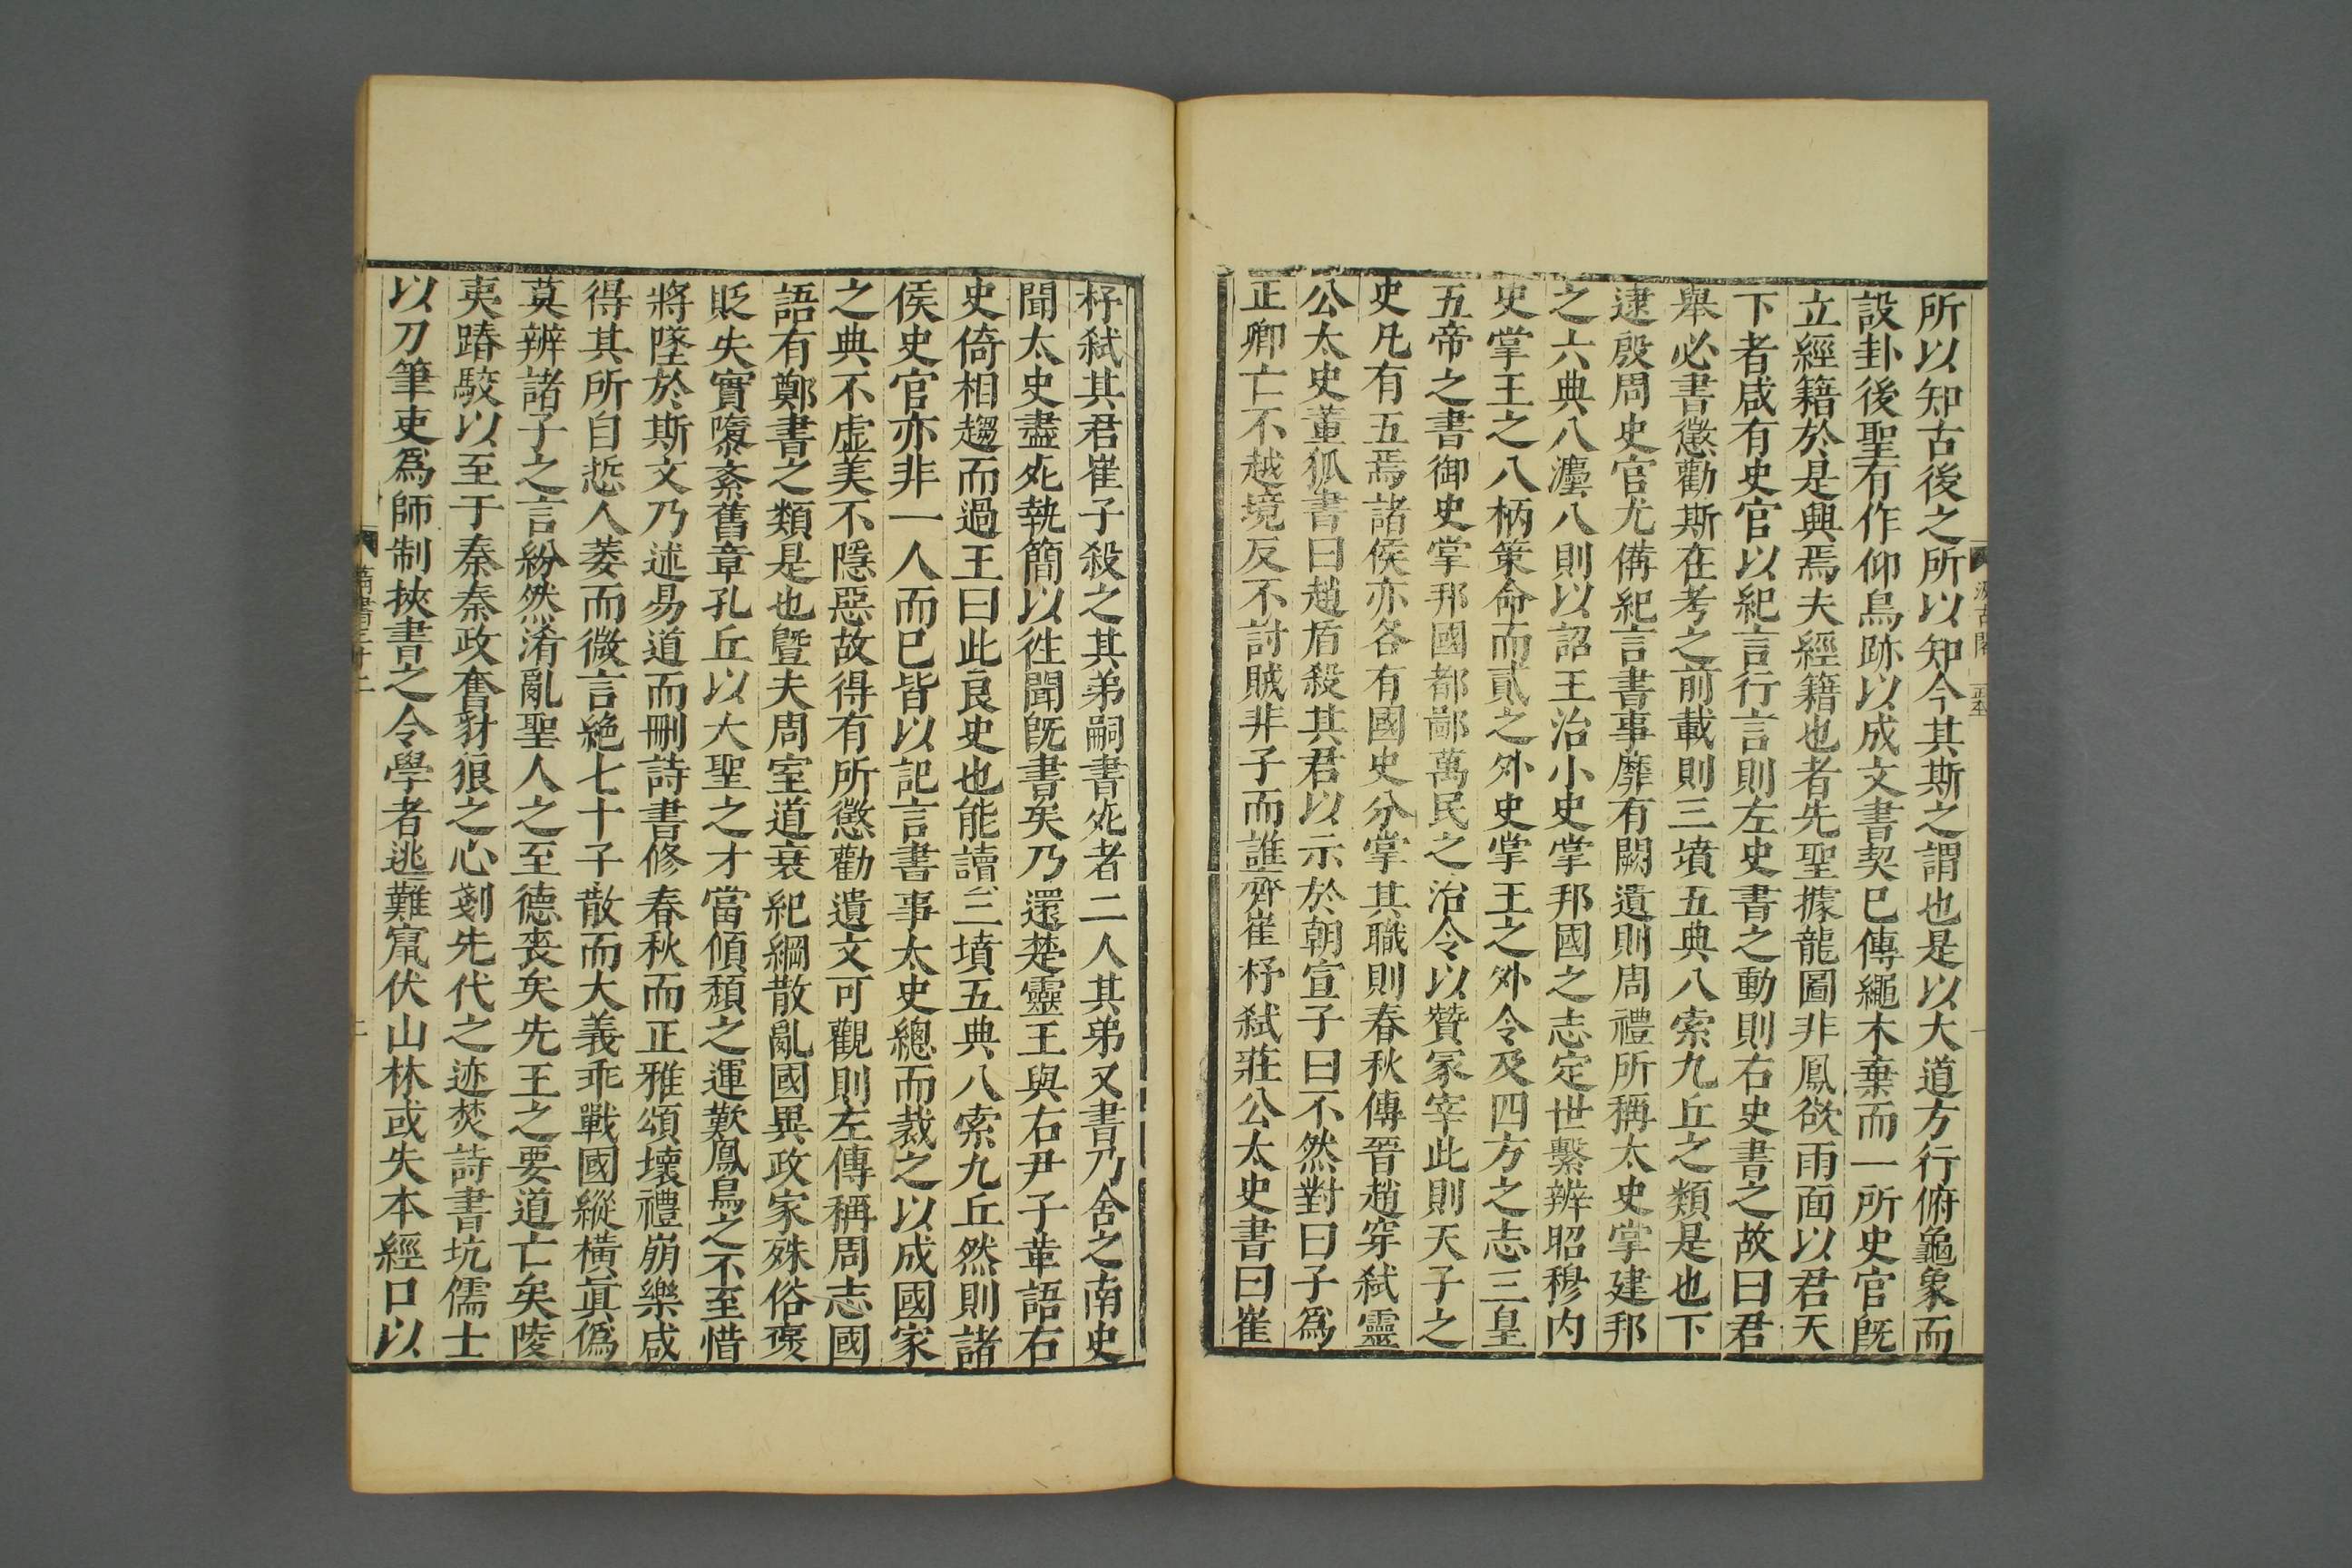 所以知古後之所以知今其斯之謂也是以大道方行俯龜象而
設卦後聖有作仰鳥跡以成文書契已傳繩木棄而一所史官旣
立經籍於是興焉夫經籍也者先聖據龍圖非鳳欲雨面以君天
下者咸有史官以紀言行言則左史書之動則右史書之故曰君
舉必書懲勸斯在考之前載則三墳五典八索九丘之類是也下
逮殷周史官尤備紀言書事靡有闕遺則周禮所稱太史掌建邦
之六典八灋八則以詔王治小史掌邦國之志定世繫辨昭穆内
史掌王之八柄策命而貳之外史掌王之外令及四方之志三皇
五帝之書御史掌邦國都鄙萬民之治令以贊冢宰此則天子之
史凡有五焉諸侯亦各有國史分掌其職則春秋傳晉趙穿弑靈
公太史董狐書曰趙盾殺其君以示於朝宣子曰不然對曰子爲
正卿亡不越境反不討賊非子而誰齊崔杼弑莊公太史書曰崔
杼弑其君崔子殺之其弟嗣書死者二人其弟又書乃舍之南史
聞太史盡死執簡以徃聞旣書矣乃還楚靈王與右尹子革語右
史倚相趨而過王曰此良史也能讀三墳五典八索九丘然則諸
侯史官亦非一人而已皆以記言書事太史總而裁之以成國家
之典不虛美不隱惡故得有所懲勸遺文可觀則左傳稱周志國
語有鄭書之類是也曁夫周室道衰紀綱散亂國異政家殊俗褒
貶失實隳紊舊章孔丘以大聖之才當傾頹之運歎鳳鳥之不至惜
將墜於斯文乃述易道而刪詩書修春秋而正雅頌壞禮崩樂咸
得其所自悊人萎而微言絶七十子散而大義乖戰國縱橫眞僞
莫辨諸子之言紛然淆亂聖人之至德喪矣先王之要道亡矣陵
夷踳駮以至于秦秦政奮豺狼之心剗先代之迹焚詩書坑儒士
以刀筆吏爲師制挾書之令學者逃難竄伏山林或失本經口以